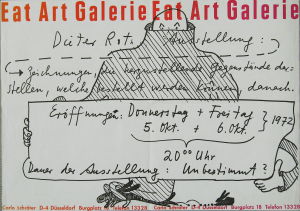 Eat Art Galerie Eat Art Galerie
Dieter Rot, Ausstellung:
Zeichnungen, die herzustellende Gegenstände dar-
stellen, welche bestellt werden können, danach.
Eröffnungen: Donnerstag + Freitag
5. Okt. + 6. Okt. } 1972
20⁰⁰ Uhr
Dauer der Ausstellung: Unbestimmt?
Carlo Schröter D-4 Düsseldorf Burgplatz 19 Telefon 13228 Carlo Schröter D-4 Düsseldorf Burgplatz 19 Telefon 13228